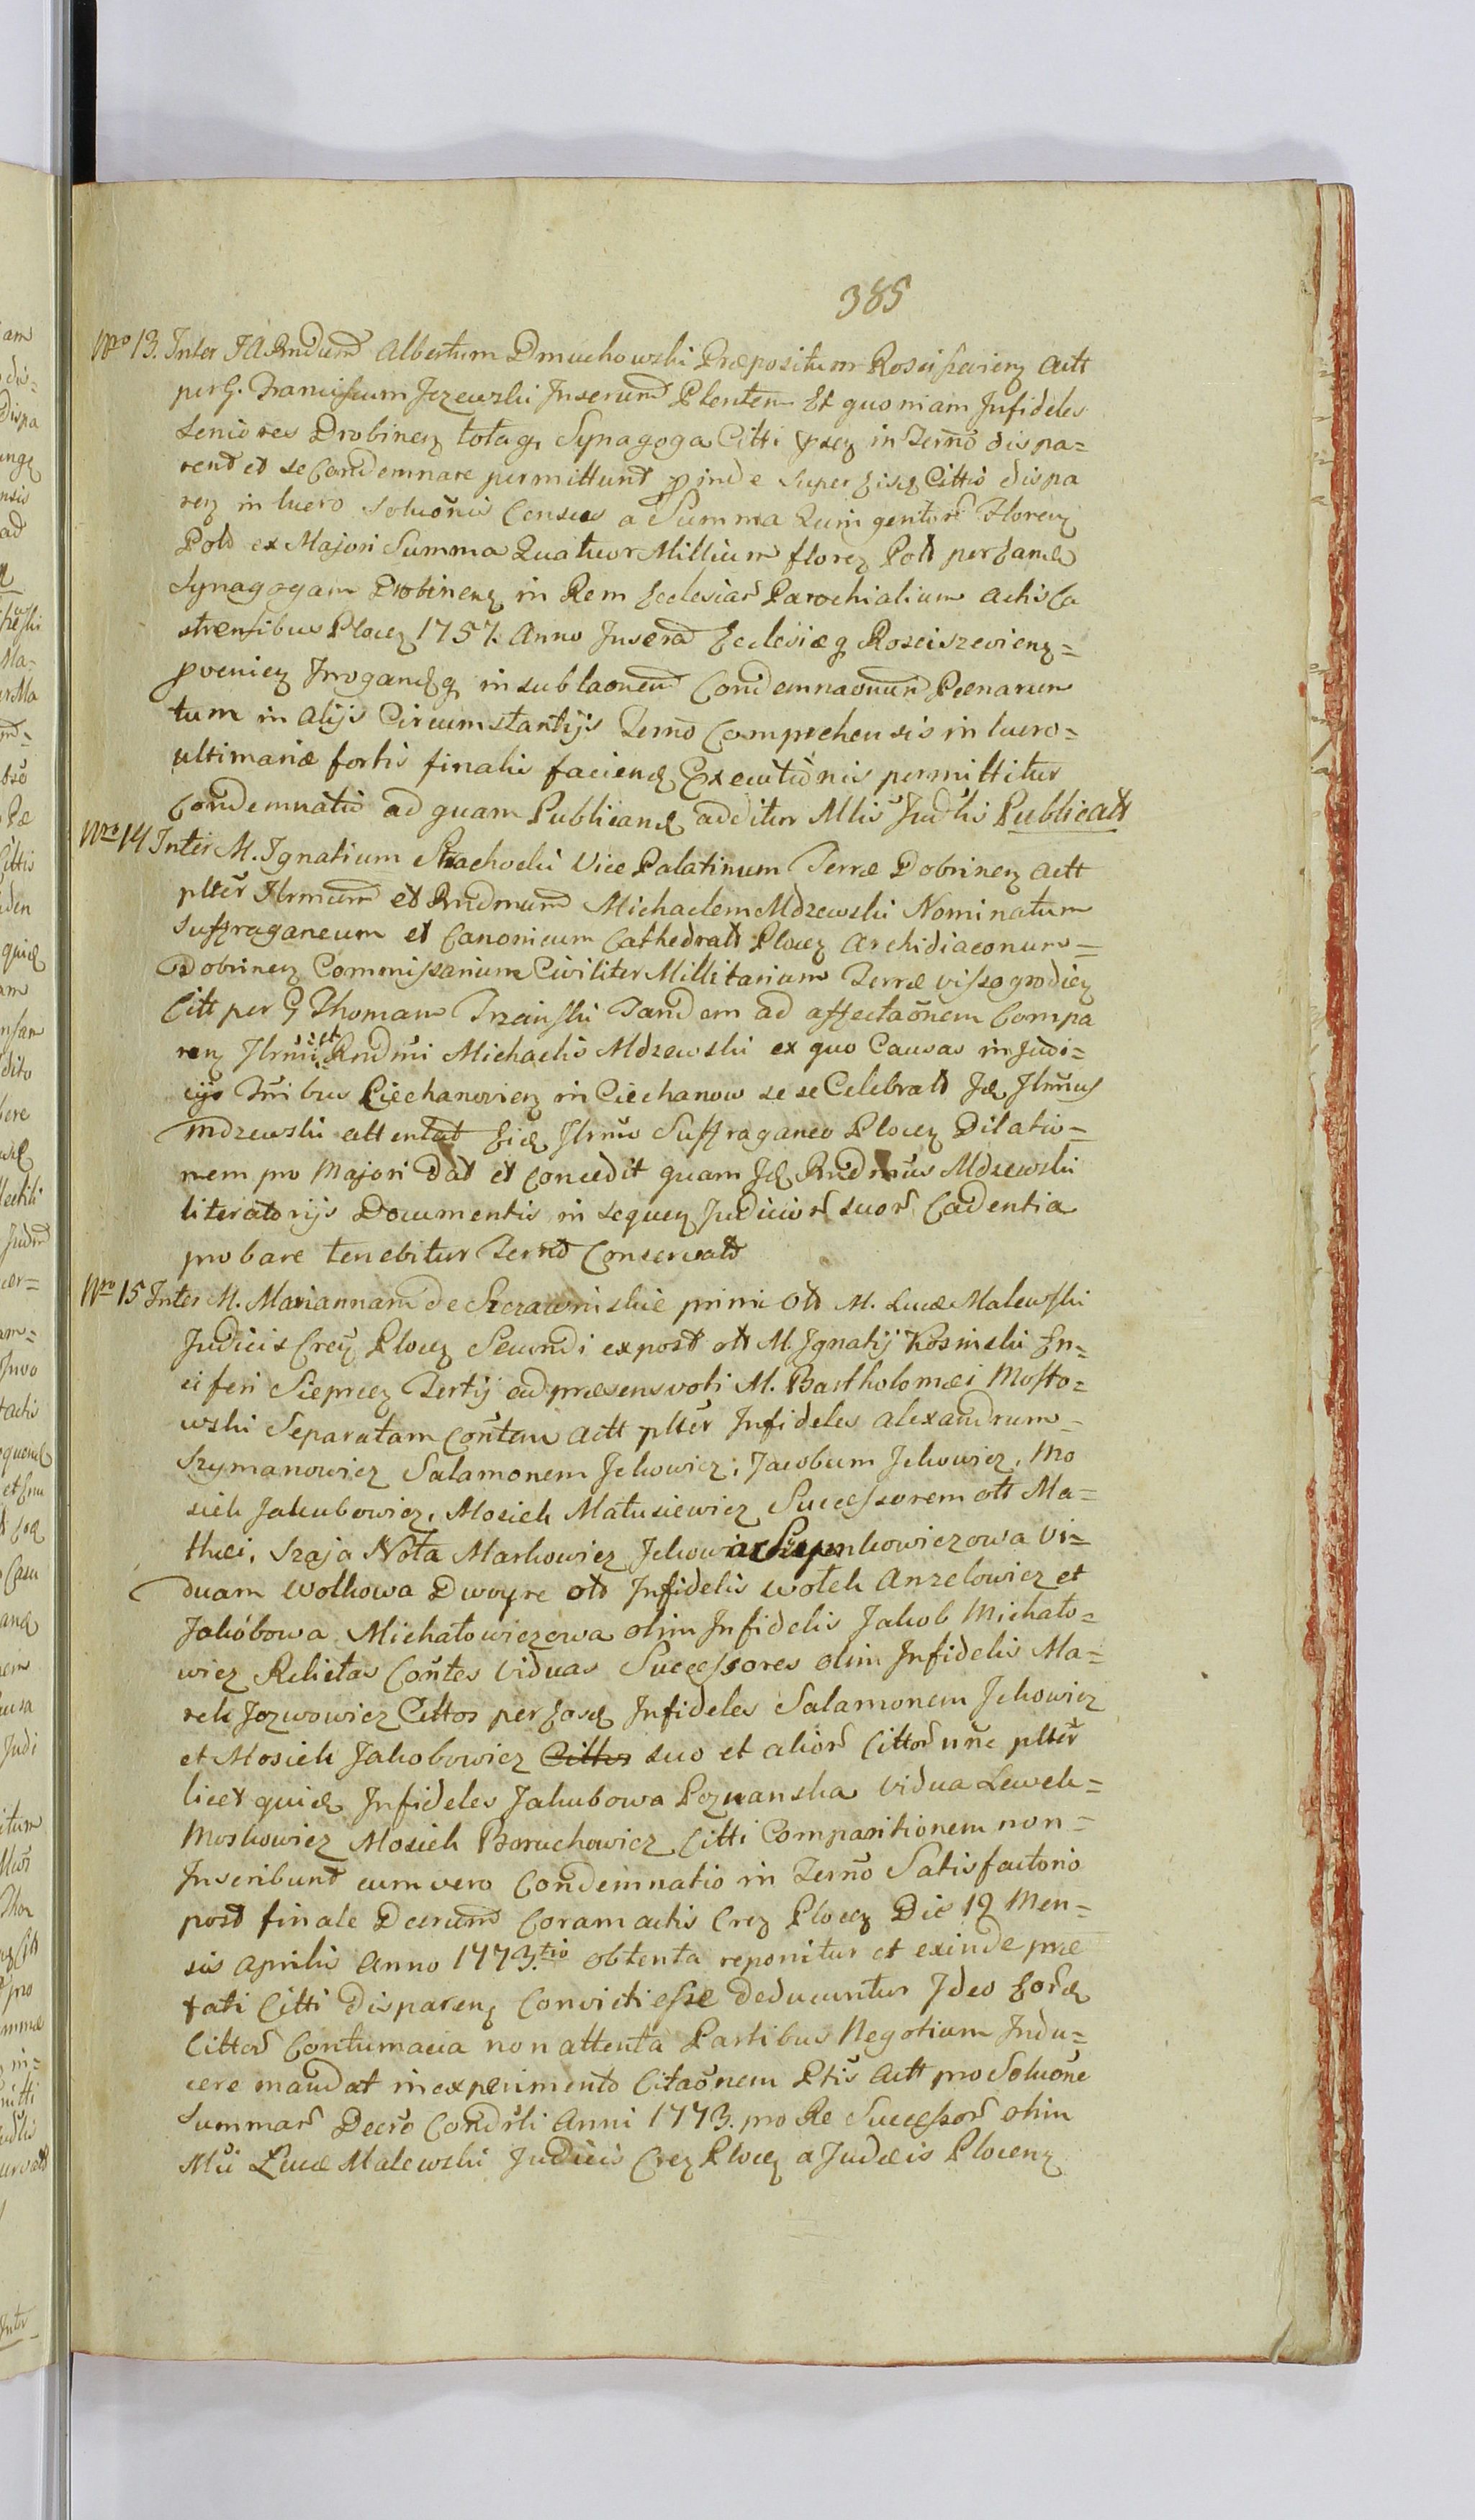 385
Nro 13. Inter IA Rndum Albertum Dmuchowski Præpositum Rosciszewienz Actt
per G. Franciscum Jezewski Inserund Plenten Et quoniam Infideles
Seniores Drobinenz totaq. Synagoga Citti pnsz in Termo dispa=
rent et se Condemnare permittunt proinde super eisd Cittis dispa
renz in lucro Soluonis Census a Summa Quingentor Florenz
Poll ex Majori Summa Quatuor Millium florenz Poll per eande
Synagogam Drobinenz in Rem Ecclesiar Parochialium Actis Ca
strensibus Plocenz 1757. Anno Inserta Ecclesiæq Rosciszevienz=
provenienz Irrogandq in sublaonem Condemnaonum Pænarum
tum in alijs Circumstantijs Termo Comprehensis in lucro=
ultimariæ fortis finalis faciend Executionis permittitur
Condemnatio ad quam Publicand additur Mlis Judlis Publicatt
Nro 14 Inter M. Ignatium Strachocki Vice Palatinum Terræ Dobrinenz Actt
plter Illrmum et Rndmum Michaelem Mdzewski Nominatum
Suffraganeum et Canonicum Cathedrall Plocenz Archidiaconum=
Dobrinenz Commissarium Civiliter Millitarium Terræ vissogrodienz
Citt per G Thomam Trzcinski Tandem ad affectaonem Compa
renz Illrmi et Rndmi Michaelis Mdzewski ex quo Causas in Judi=
cijs Trribus Ciechanovienz in Ciechanow se se Celebratt Id Illrmus
Mdzewski attentat Eid Illrmo Suffraganeo Plocenz Dilatio=
nem pro Majori Dat et Concedit quam Id Rndmus Mdzewski
literatorijs Documentis in sequenz Judicior suor Cadentia
probare tenebitur Termo Conservato
Nro 15 Inter M. Mariannam de Szczawinskie primi Oll M. Lucæ Malewski
Judicis Crenz Plocenz Secundi expost oll M. Ignatij Kosinski En=
siferi Sieprcenz Tertij ad præsens voti M. Bartholomæi Mosto=
wski Separatam Contem Actt plter Infideles Alexandrum=
Szymanowicz Salamonem Jckowicz, Jacobum Jckowicz, Mo
siek Jakubowicz, Mosiek Matusiewicz Successorem oll Ma=
thæi, Szaja Nota Markowicz Jckowicz Szepnkowiczowa Vi=
duam Wolkowa Dwoyre oll Infidelis Wolek Anzelowicz et
Jakóbowa Michałowiczowa olim Infidelis Jakob Michało=
wicz Relictas Contes Viduas Successores olim Infidelis Ma=
rek Jozwowicz Cittos per Eosd Infideles Salamonem Jckowicz
et Mosiek Jakobowicz Cittos suo et alior Cittor nne plter
licet quid Infideles Jakubowa Poznanska Vidua Lewek=
Moskowicz Mosiek Boruchowicz Citti Comparitionem non=
Inscribunt cum vero Condemnatio in Termo Satisfactorio
post finale Decretum Coram actis Crenz Plocenz Die 12 Men=
sis Aprilis Anno 1773.tio obtenta reponitur et exinde præ
fati Citti Disparenz Convicti esse deducuntur Ideo Eord
Cittor Contumacia non attenta Partibus Negotium Indu=
cere mandat in experimento Citaonem Ptis Actt pro Soluone
Summar Decro Condrli Anni 1773. pro Re Successor olim
Mci Lucæ Malewski Judicis Crenz Plocenz a Judæis Plocenz